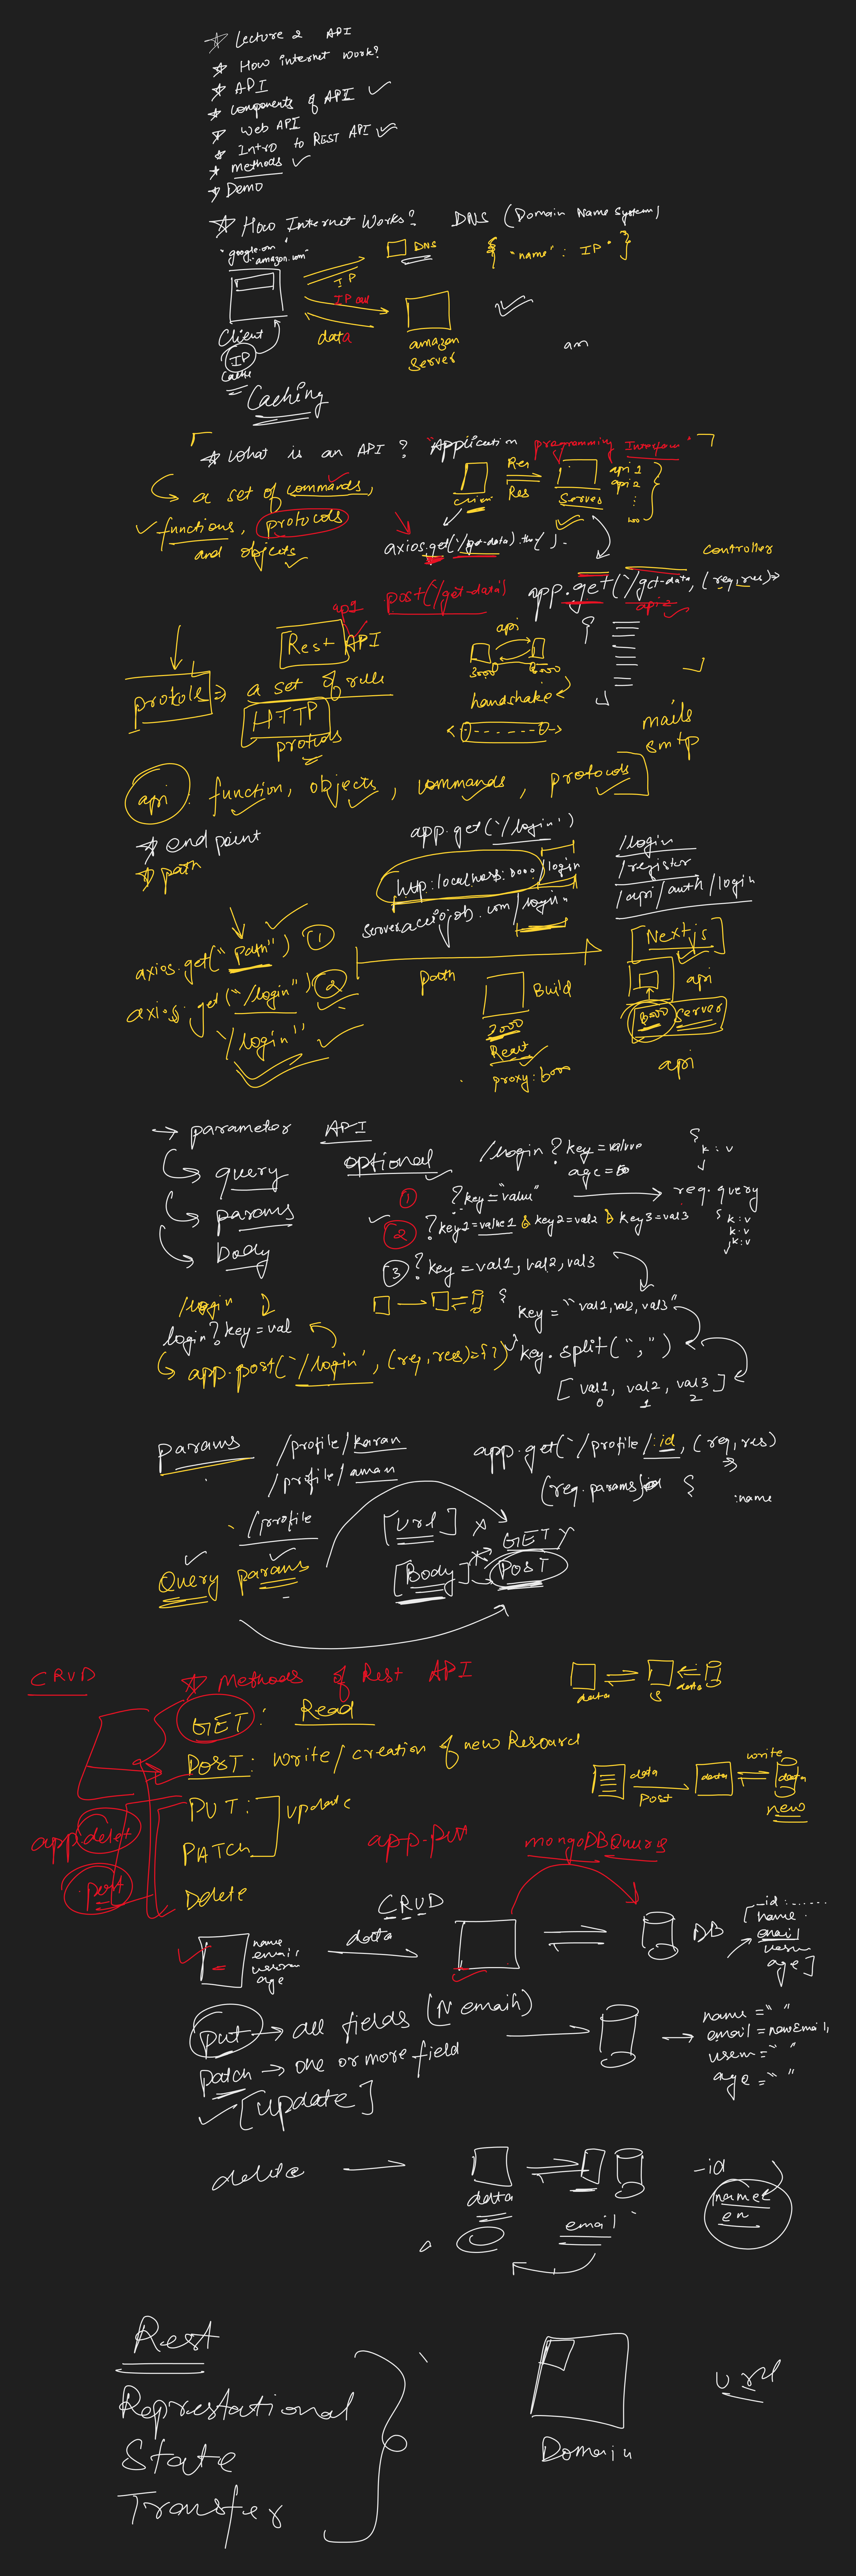 Lecture 2 API
How internet work?
API
Components of API
Web API
Intro to REST API
methods
Demo
How Internet Works? DNS (Domain Name System)
"google.com"
"amazon.com"
DNS
{ "name" : IP " }
IP
IP
data
Client
IP
Cache
amazon
Server
an
Caching
What is an API? "Application programming Interface"
a set of commands,
functions, protocols
and objects
Res
Res
Client
Server
api 1
api 2
axios.get('/get-data).then( ).
controller
post('/get-data)
app.get('/get-data, (req, res) =>
api 2
Rest API
protocols => a set of rule
HTTP
protocols
api
3000
8000
handshake
mails
smtp
api : function, objects, commands, protocols
end point
path
app.get('/login')
http:localhost:8000/login
server.acciojob.com/login
/login
/register
/api/auth/login
axios.get("path") 1
axios.get("/login") 2
'/login''
path
Build
3000
React
[Nextjs]
api
8000 server
api
parameter API
query
params
body
optional
/login ? key = value
age =
{
k : v
}
1 ? key = "value"
req.query
2 ? key1 = value1 & key2 = val2 & key3 = val3
{ k : v
k : v
k : v
}
3 ? key = val1, val2, val3
/login
login?key=val
key = "val1, val2, val3"
app.post('/login', (req, res) => { })
key.split(",")
[val1, val2, val3]
0 1 2
params
/profile/karan
/profile/aman
app.get('/profile/:id, (req, res)
=>
(req.params)
{
:name
/profile
[url] x
GET
Query params
[Body]
POST
CRUD
Methods of Rest API
data
S
data
GET : Read
POST : Write / creation of new Resource
PUT :
update
PATCH
Delete
data
post
data
write
data
new
app.delet
.post
app.put
mongoDB Querys
CRUD
name
email
age
data
DB
_id : ......
[name :
email
age]
put → all fields (N email)
patch → one or more field
[update]
name = " "
email = newEmail,
usern = " "
age = " "
delete
data
email
_id
name
em
Rest
Represtational
State
Transfer
Domain
url